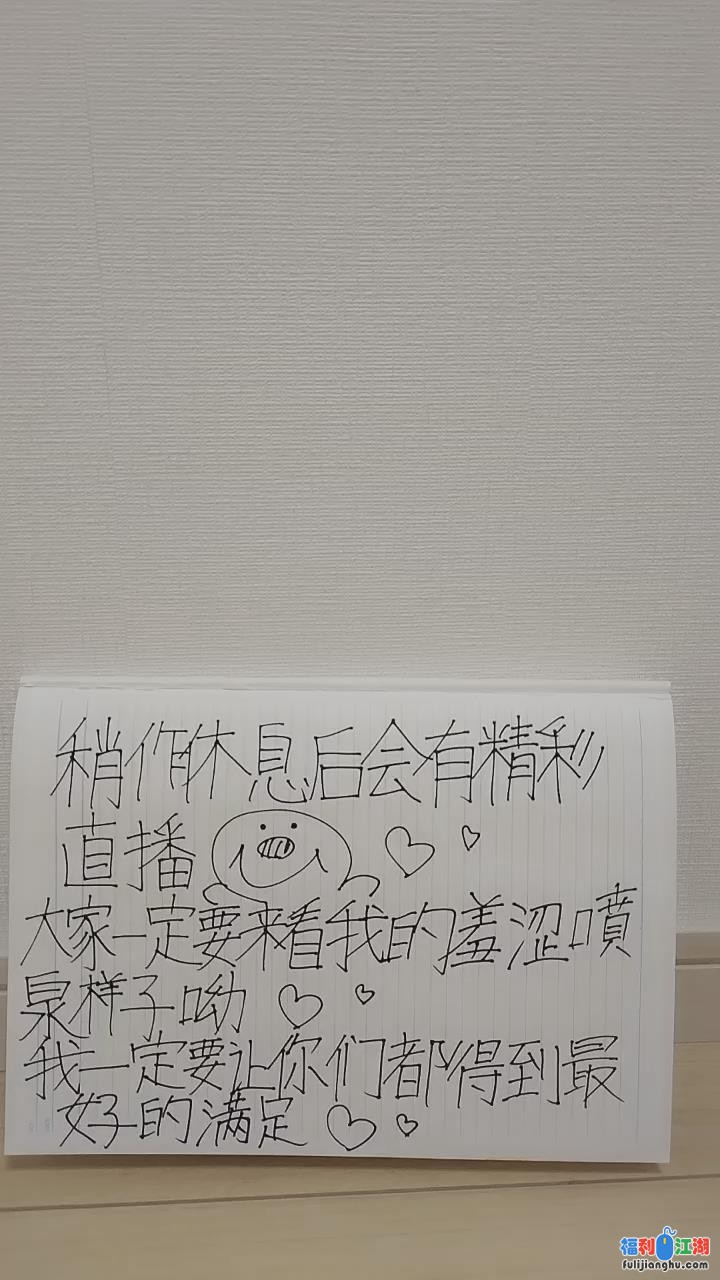 稍作休息后会有精彩
直播
大家一定要来看我的羞涩噴
泉样子呦
我一定要让你们都得到最
好的满足
福利江湖
fulijianghu.com